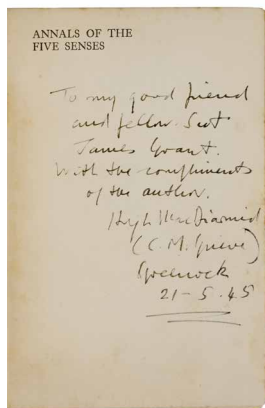 ANNALS OF THE
FIVE SENSES
To my good friend
and fellow-Scot
James Grant.
With the compliments
of the author.
Hugh MacDiarmid
(C. M. Grieve)
Greenock
21-5-45